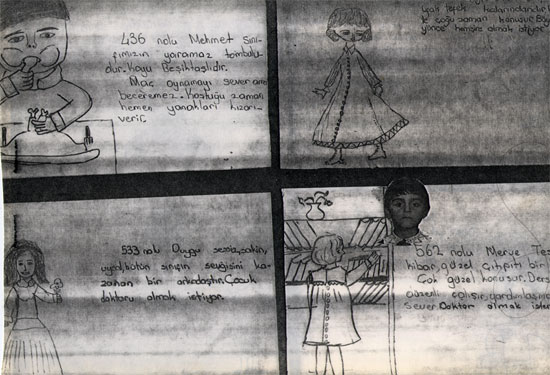 436 nolu Mehmet Sını-
fımızın yaramaz tombulu
dur. Koyu Beşiktaşlıdır.
Maç oynamayı sever ama
beceremez. Koştuğu zaman
hemen yanakları kızarı-
verir.
çok zaman konuşur.
hemşire olmak istiyor.
533 nolu Duygu sessiz, sakin,
uysal, bütün sınıfın sevgisini ka-
zanan bir arkadaştır. Çocuk
doktoru olmak istiyor.
562 nolu Merve Tez
kibar, güzel çıtıpıtı bir
Çok güzel konuşur. Ders
düzenli çalışır, yardımlaşma
sever. Doktor olmak ister